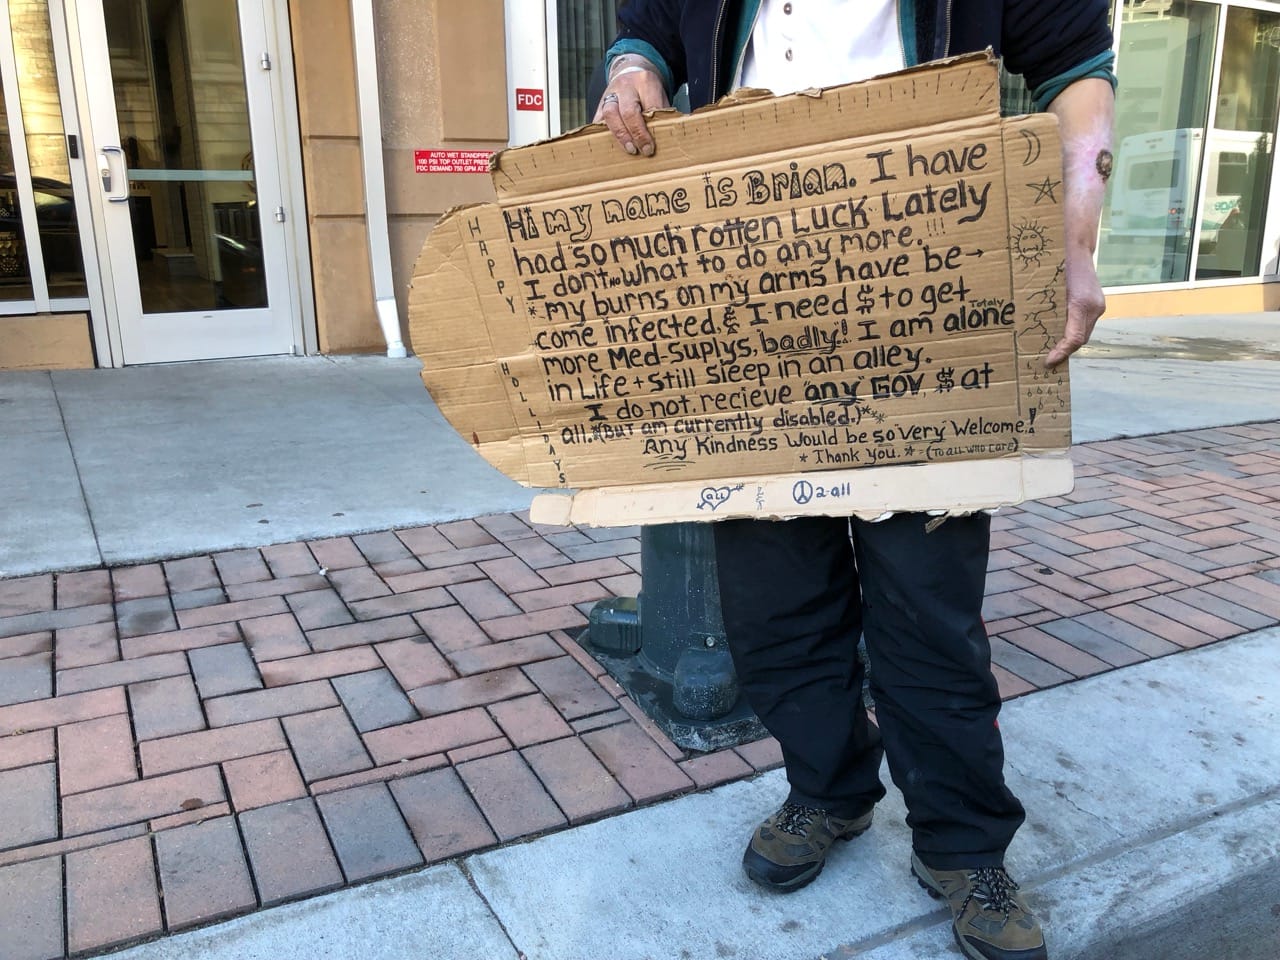 FDC
AUTO WET STANDPIPE
100 PSI TOP OUTLET PRESS
FDC DEMAND 750 GPM AT 2
Hi my name is Brian. I have
had "so much" rotten Luck Lately
I dont know what to do any more.!!!
*my burns on my arms have be→
come infected, & I need $ to get
more Med-Suplys, badly!! I am Totaly alone
in Life + still sleep in an alley.
I do not recieve "any" GOV, $ at
all.*(But am currently disabled.)***
Any Kindness Would be so very Welcome!
* Thank you. * = (To all who care)
HAPPY
HOLLIDAYS
all
2-all